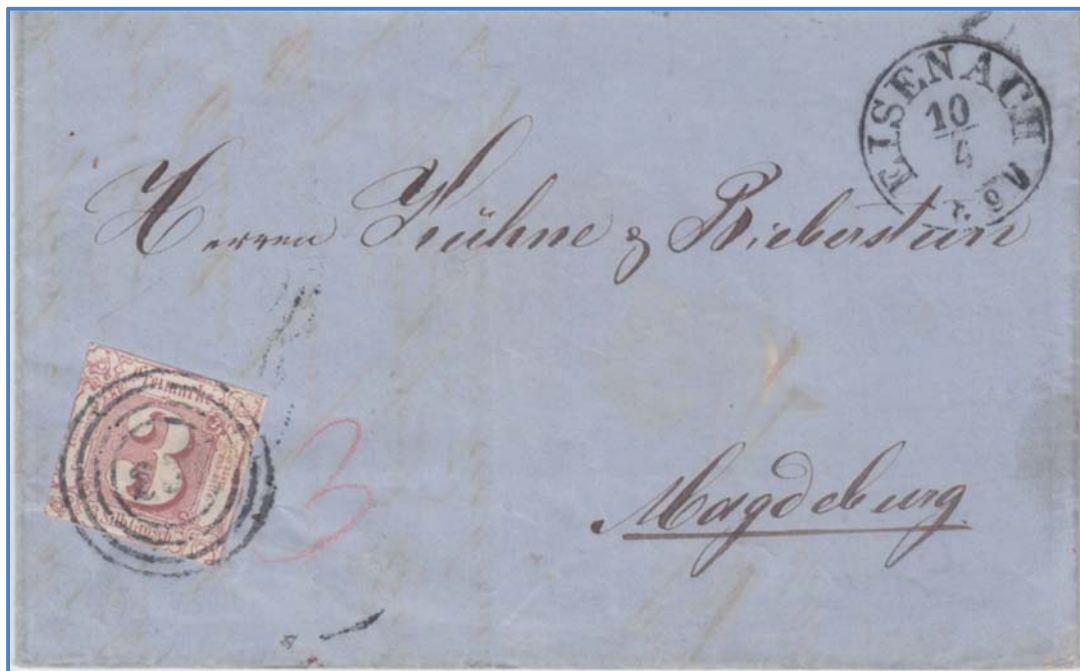 EISENACH
10
4
Herren Kühne & Bieberstein
Freimarke
3
3
Magdeburg